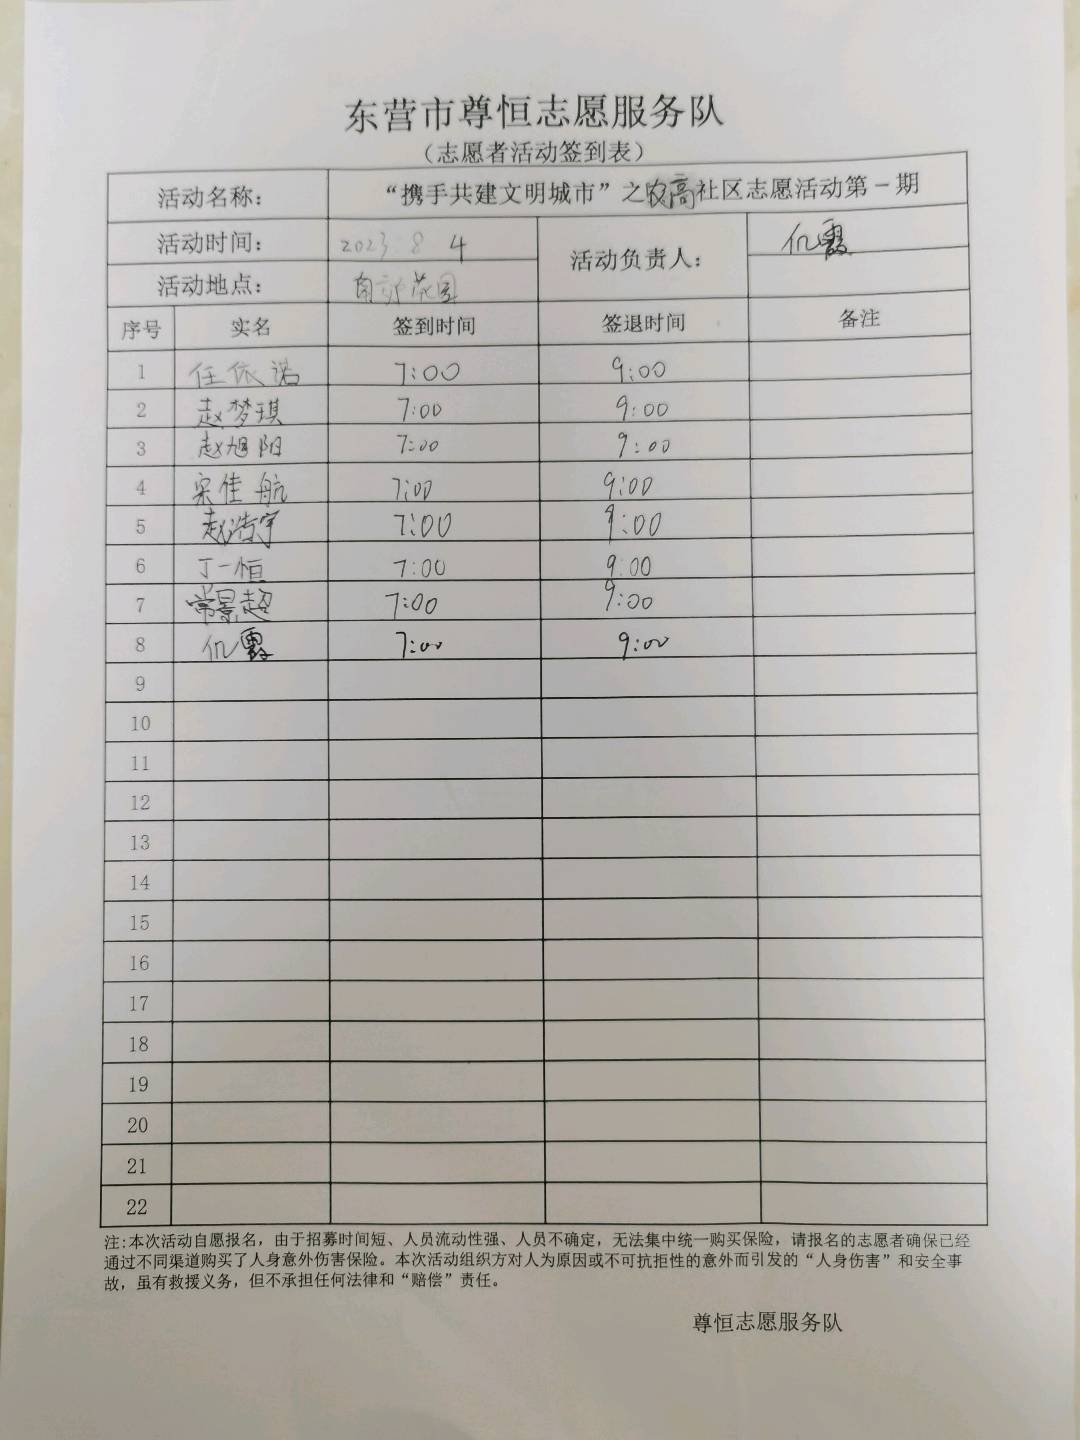 东营市尊恒志愿服务队
（志愿者活动签到表）
活动名称： “携手共建文明城市”之农高社区志愿活动第一期
活动时间： 2023.8 4 活动负责人： 仉霞
活动地点： 南郊花园
序号 实名 签到时间 签退时间 备注
1 任依诺 7:00 9:00
2 赵梦琪 7:00 9:00
3 赵旭阳 7:00 9:00
4 宋佳航 7:00 9:00
5 赵浩宇 7:00 9:00
6 丁一恒 7:00 9:00
7 常景超 7:00 9:00
8 仉霞 7:00 9:00
9
10
11
12
13
14
15
16
17
18
19
20
21
22
注:本次活动自愿报名，由于招募时间短、人员流动性强、人员不确定，无法集中统一购买保险，请报名的志愿者确保已经
通过不同渠道购买了人身意外伤害保险。本次活动组织方对人为原因或不可抗拒性的意外而引发的“人身伤害”和安全事
故，虽有救援义务，但不承担任何法律和“赔偿”责任。
尊恒志愿服务队